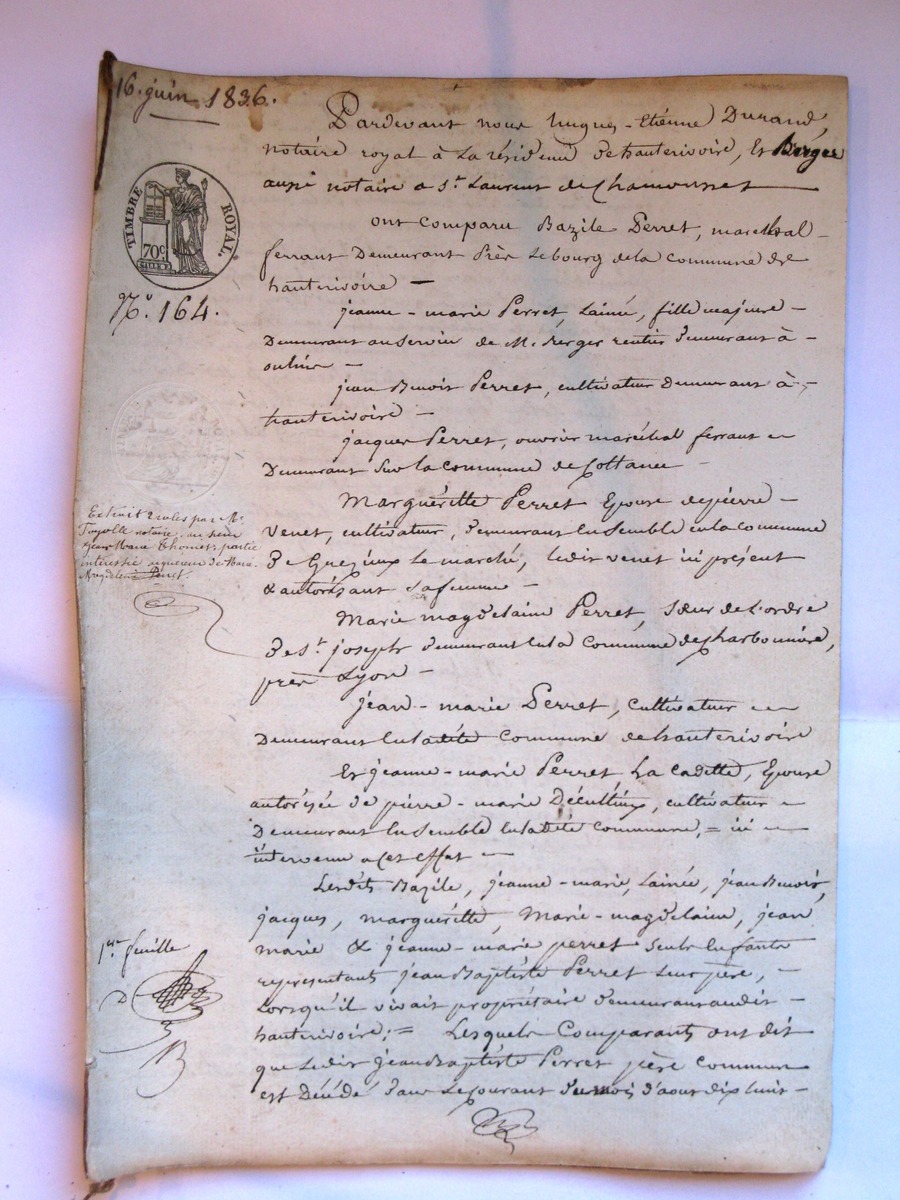 16. juin 1836.
Pardevant nous hugues-Etiénne Durand,
notaire royal à la résidence de hauterivoire, Et Berger
aussi notaire a St. Laurent de Chamousset
TIMBRE ROYAL.
70c
ont comparu Bazile Perret, marechal
ferrant Demeurant Près Lebourg de la commune de
hauterivoire
No. 164.
jeanne-marie Perret, Lainé, fille majeure
Demeurant au Service de M. Berger rentier Demeurant à
jean Benoit Perret, cultivateur Demeurant à
hauterivoire
jacques Perret, ouvrier maréchal ferrant
Demeurant Sur la commune de Cottance
Marguéritte Perret Epouse de piérre
Venet, cultivateur, demeurant Ensemble En la commune
de Grezieux Le marché, Ledit Venet ici présent
& autorisant Sa femme
Extrait 2 roles par Me.
notaire, au Sieur
Jean Marie Thomet, partie
interessé acquereur de Marie
Magdeleine Perret.
Marie magdelaine Perret, Sœur de L'ordre
de St. joseph demeurant En la Commune de Charbonnière,
près Lyon
jean-marie Perret, cultivateur
Demeurant En ladité Commune de hauterivoire
Et jeanne-marie Perret, La cadette, Epouse
autorisée de piérre-marie Décultieux, cultivateur
Demeurant Ensemble En ladité commune, = ici
intervenu a cet effet
Lesdits Bazile, jeanne-marie, Lainée, jean Benoit,
jacques, marguéritte, Marie-magdelaine, jean
marie & jeanne-marie perret Seuls Enfants
representants jean Baptiste Perret Leur père,
Lorsqu'il vivait propriétaire demeurant audit
hauterivoire; = Lesquels Comparants ont dit
que Ledit Jean Baptiste Perret père commun
est Décédé dans Le courant du mois d'aout dix huit
1ere feuille
D
B